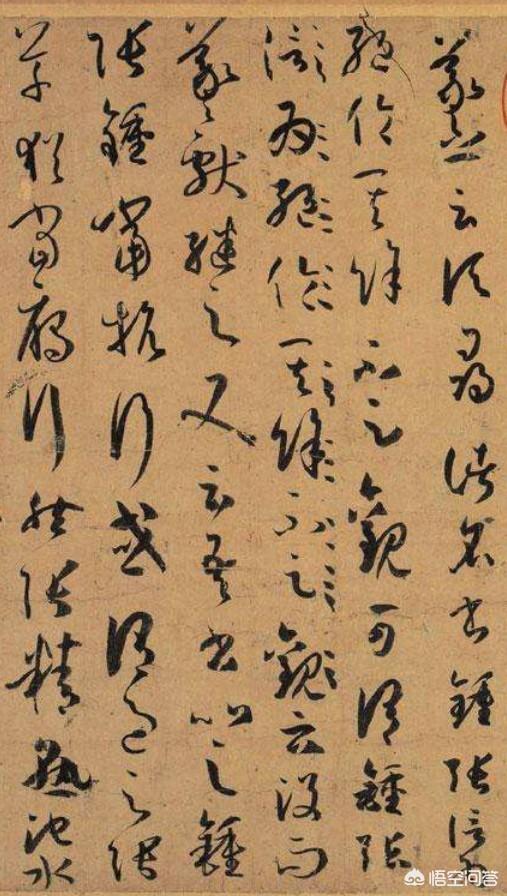 羲之云頃尋諸名書鍾張信為
絕倫其餘不足觀可謂鍾張
信為絕倫其餘不足觀云沒而
羲獻繼之又云吾書比之鍾
張鍾當抗行或謂過之張
草猶當雁行然張精熟池水
悟空问答